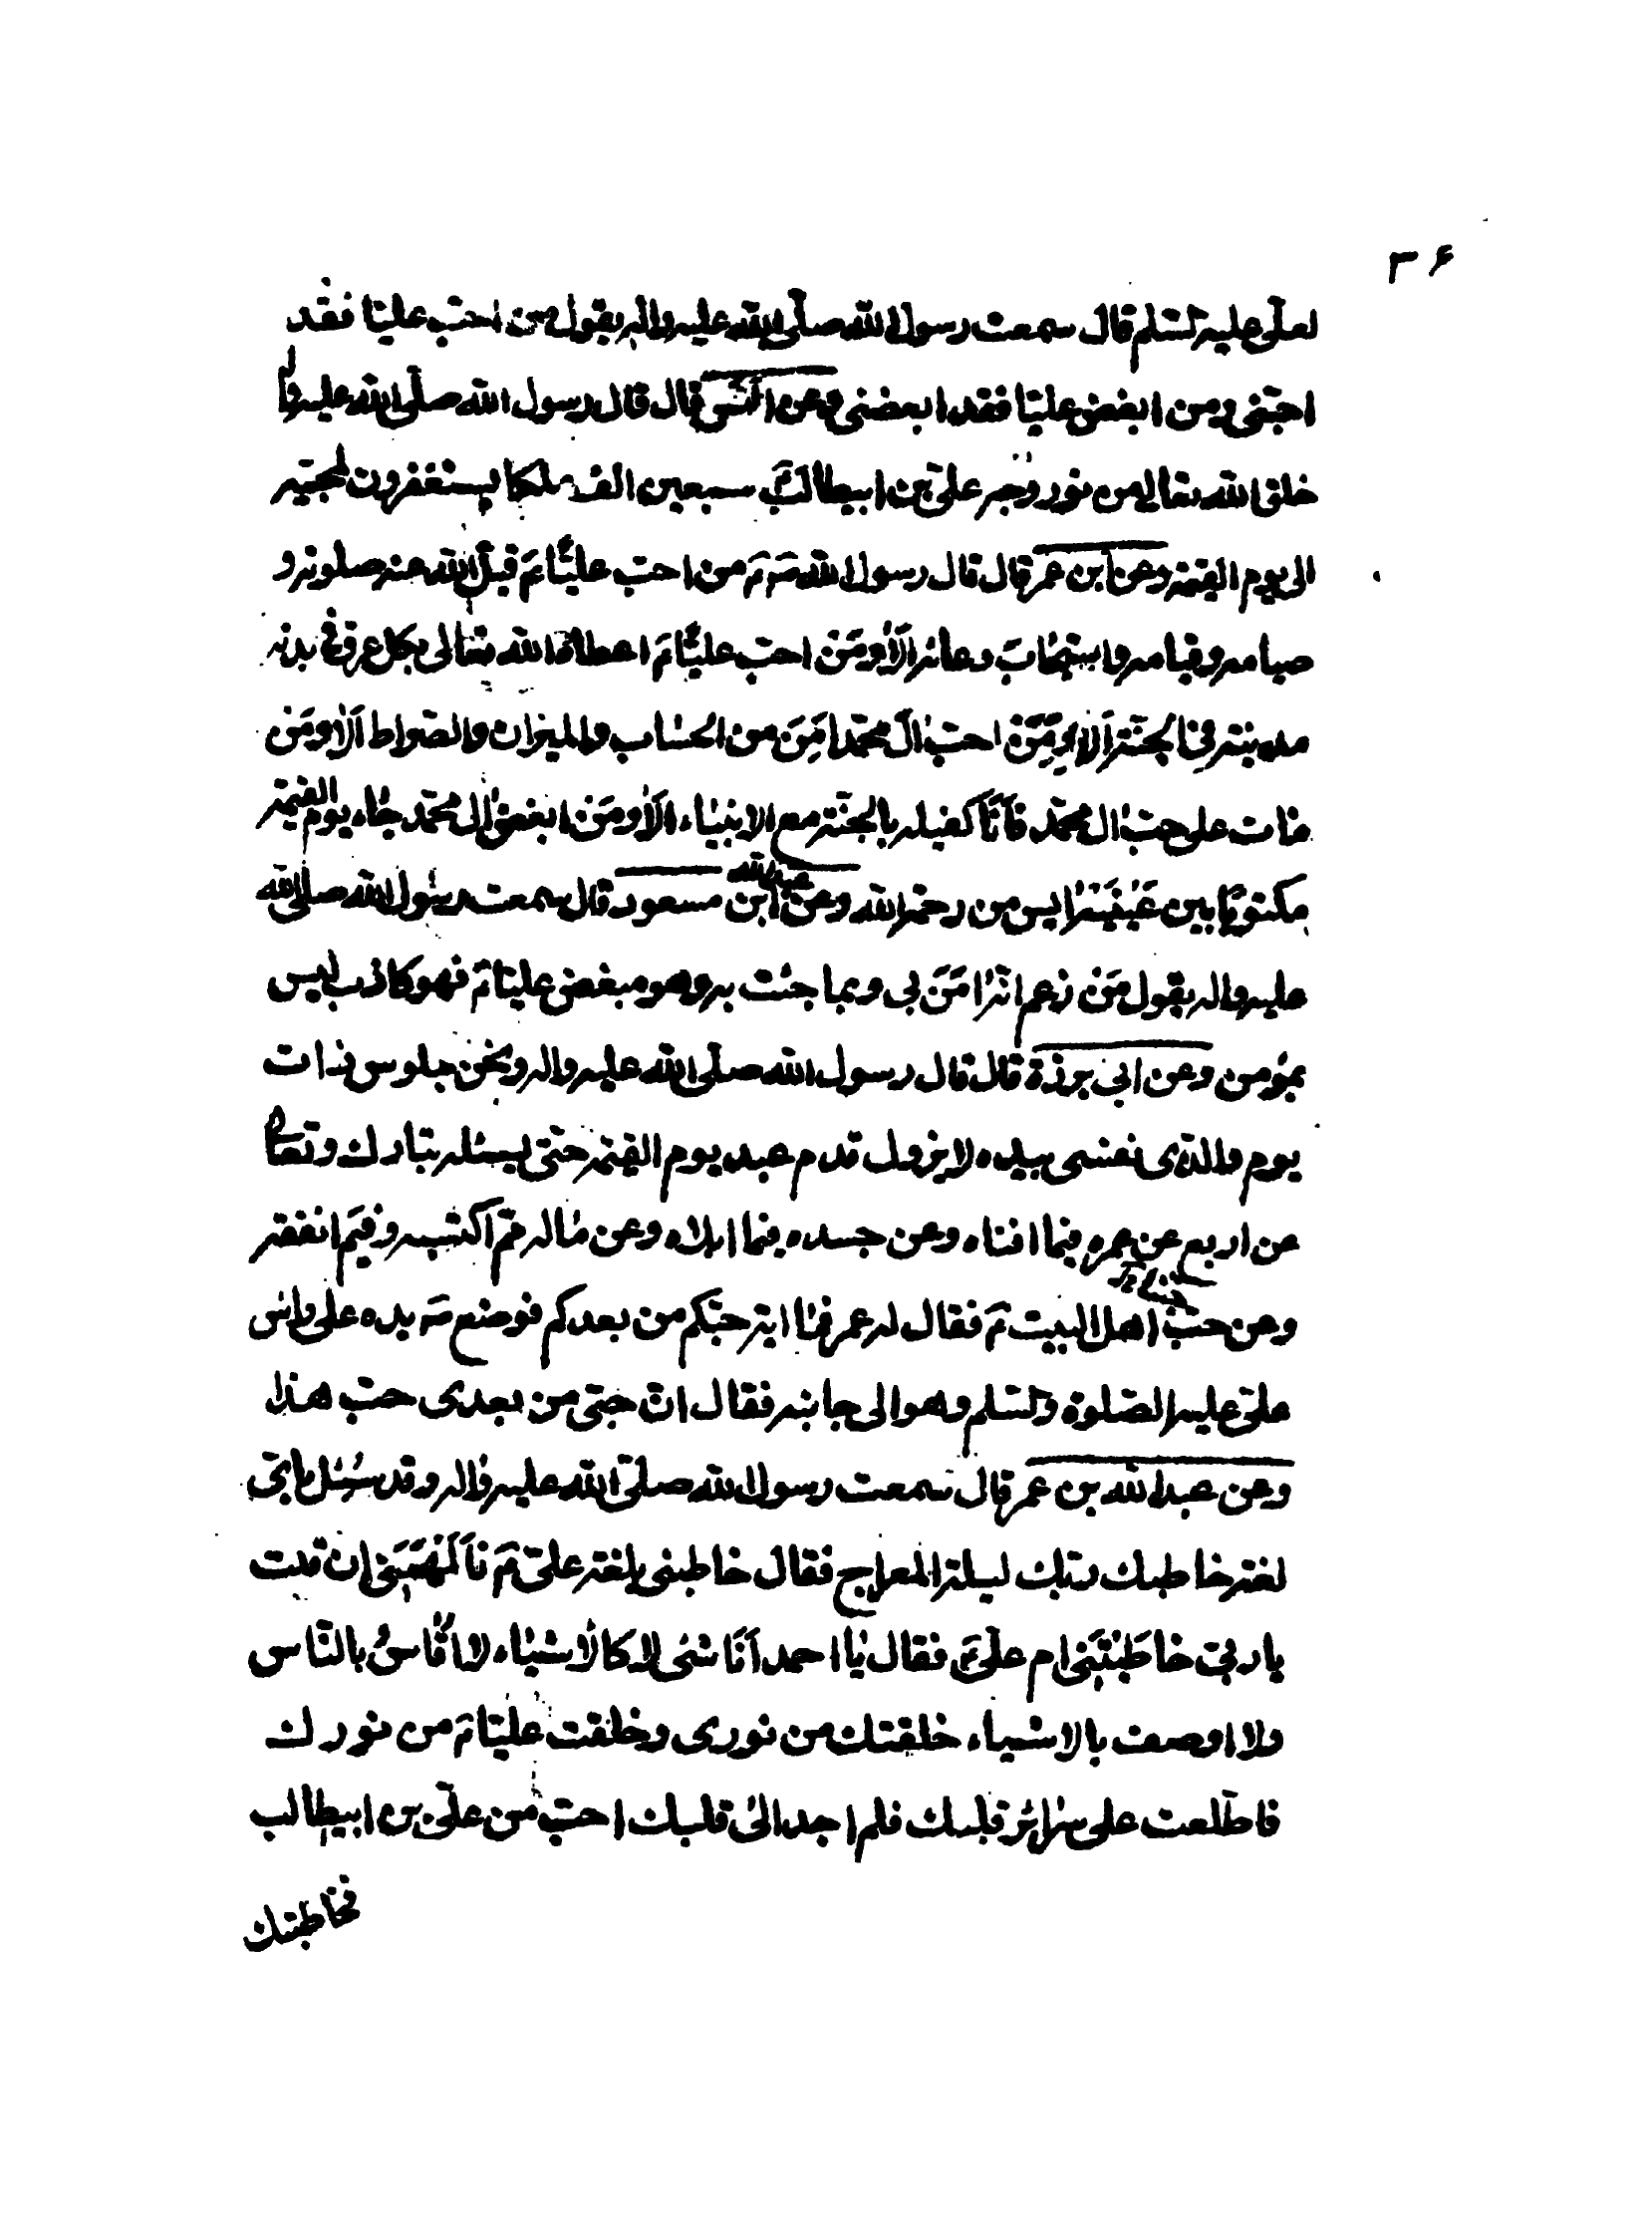 ۳۶
لعلی علیه السلم قال سمعت رسول الله صلّی الله علیه واله یقول من احبّ علیّا فقد
احبّنی ومن ابغض علیّا فقد ابغضنی وعن انس قال قال رسول الله صلّی الله علیه واله
خلق الله تعالی من نور وجه علیّ بن ابیطالبؑ سبعین الف ملکا یستغفرون لمحبّیه
الی یوم القیمة وعن ابن عمر قال قال رسول اللهصم من احبّ علیّاعم قبل الله عنه صلوته و
صیامه وقیامه واستجاب دعائه اَلا ومَنْ احبّ علیّاعم اعطاه الله تعالی بکل عرق فی بدنه
مدینة فی الجنّة اَلا ومَنْ احبّ آل محمّد امِنَ من الحساب والمیزان والصّراط اَلا ومَن
مات علی حبّ ال محمّد فاَنَا کفیله بالجنّة مع الانبیاء اَلا ومَن ابغض ال محمّد جاء یوم القیمة
مکتوبًا بین عَیْنَیْه ایس من رحمة الله وعن عبدالله ابن مسعود قال سمعت رسول الله صلی الله
علیه واله یقول مَن زعم انّه امَنَ بی وبما جئت به وهو مبغض علیّاعم فهو کاذب لیس
بمؤمن وعن ابی برزة قال قال رسول الله صلّی الله علیه واله ونحن جلوس ذات
یوم والذی نفسی بیده لا یزول قدم عبد یوم القیمة حتّی یسئله تبارک وتعالی
عن اربع عن عمره فیما افناه وعن جسده فیما ابلاه وعن ماله ممّ اکتسبه وفیمَ انفقه
وعن حبّ اهل البیتعم فقال له عمر فما ایة حبّکم من بعدکم فوضعصم یده علی راس
علیّ علیه الصّلوة والسّلم وهو الی جانبه فقال انّ حبّی من بعدی حبّ هذا
وعن عبد الله بن عمر قال سمعت رسول الله صلّی الله علیه واله وقد سُئِل بایّ
لغة خاطبک ربّک لیلة المعراج فقال خاطبنی بلغة علیّعم فاَلْهَمَنی ان قلت
یا ربّ خاطَبْتَنی ام علیّعم فقال یا احمد اَنَا شیٔ لا کالاشیاء لا اُقاسُ بالنّاس
ولا اوصف بالاشیاء خلقتک من نوری وخلقت علیّاعم من نورک
فاطّلعت علی سرائر قلبک فلم اجد الی قلبک احبّ من علیّ بن ابیطالب
فخاطبتک